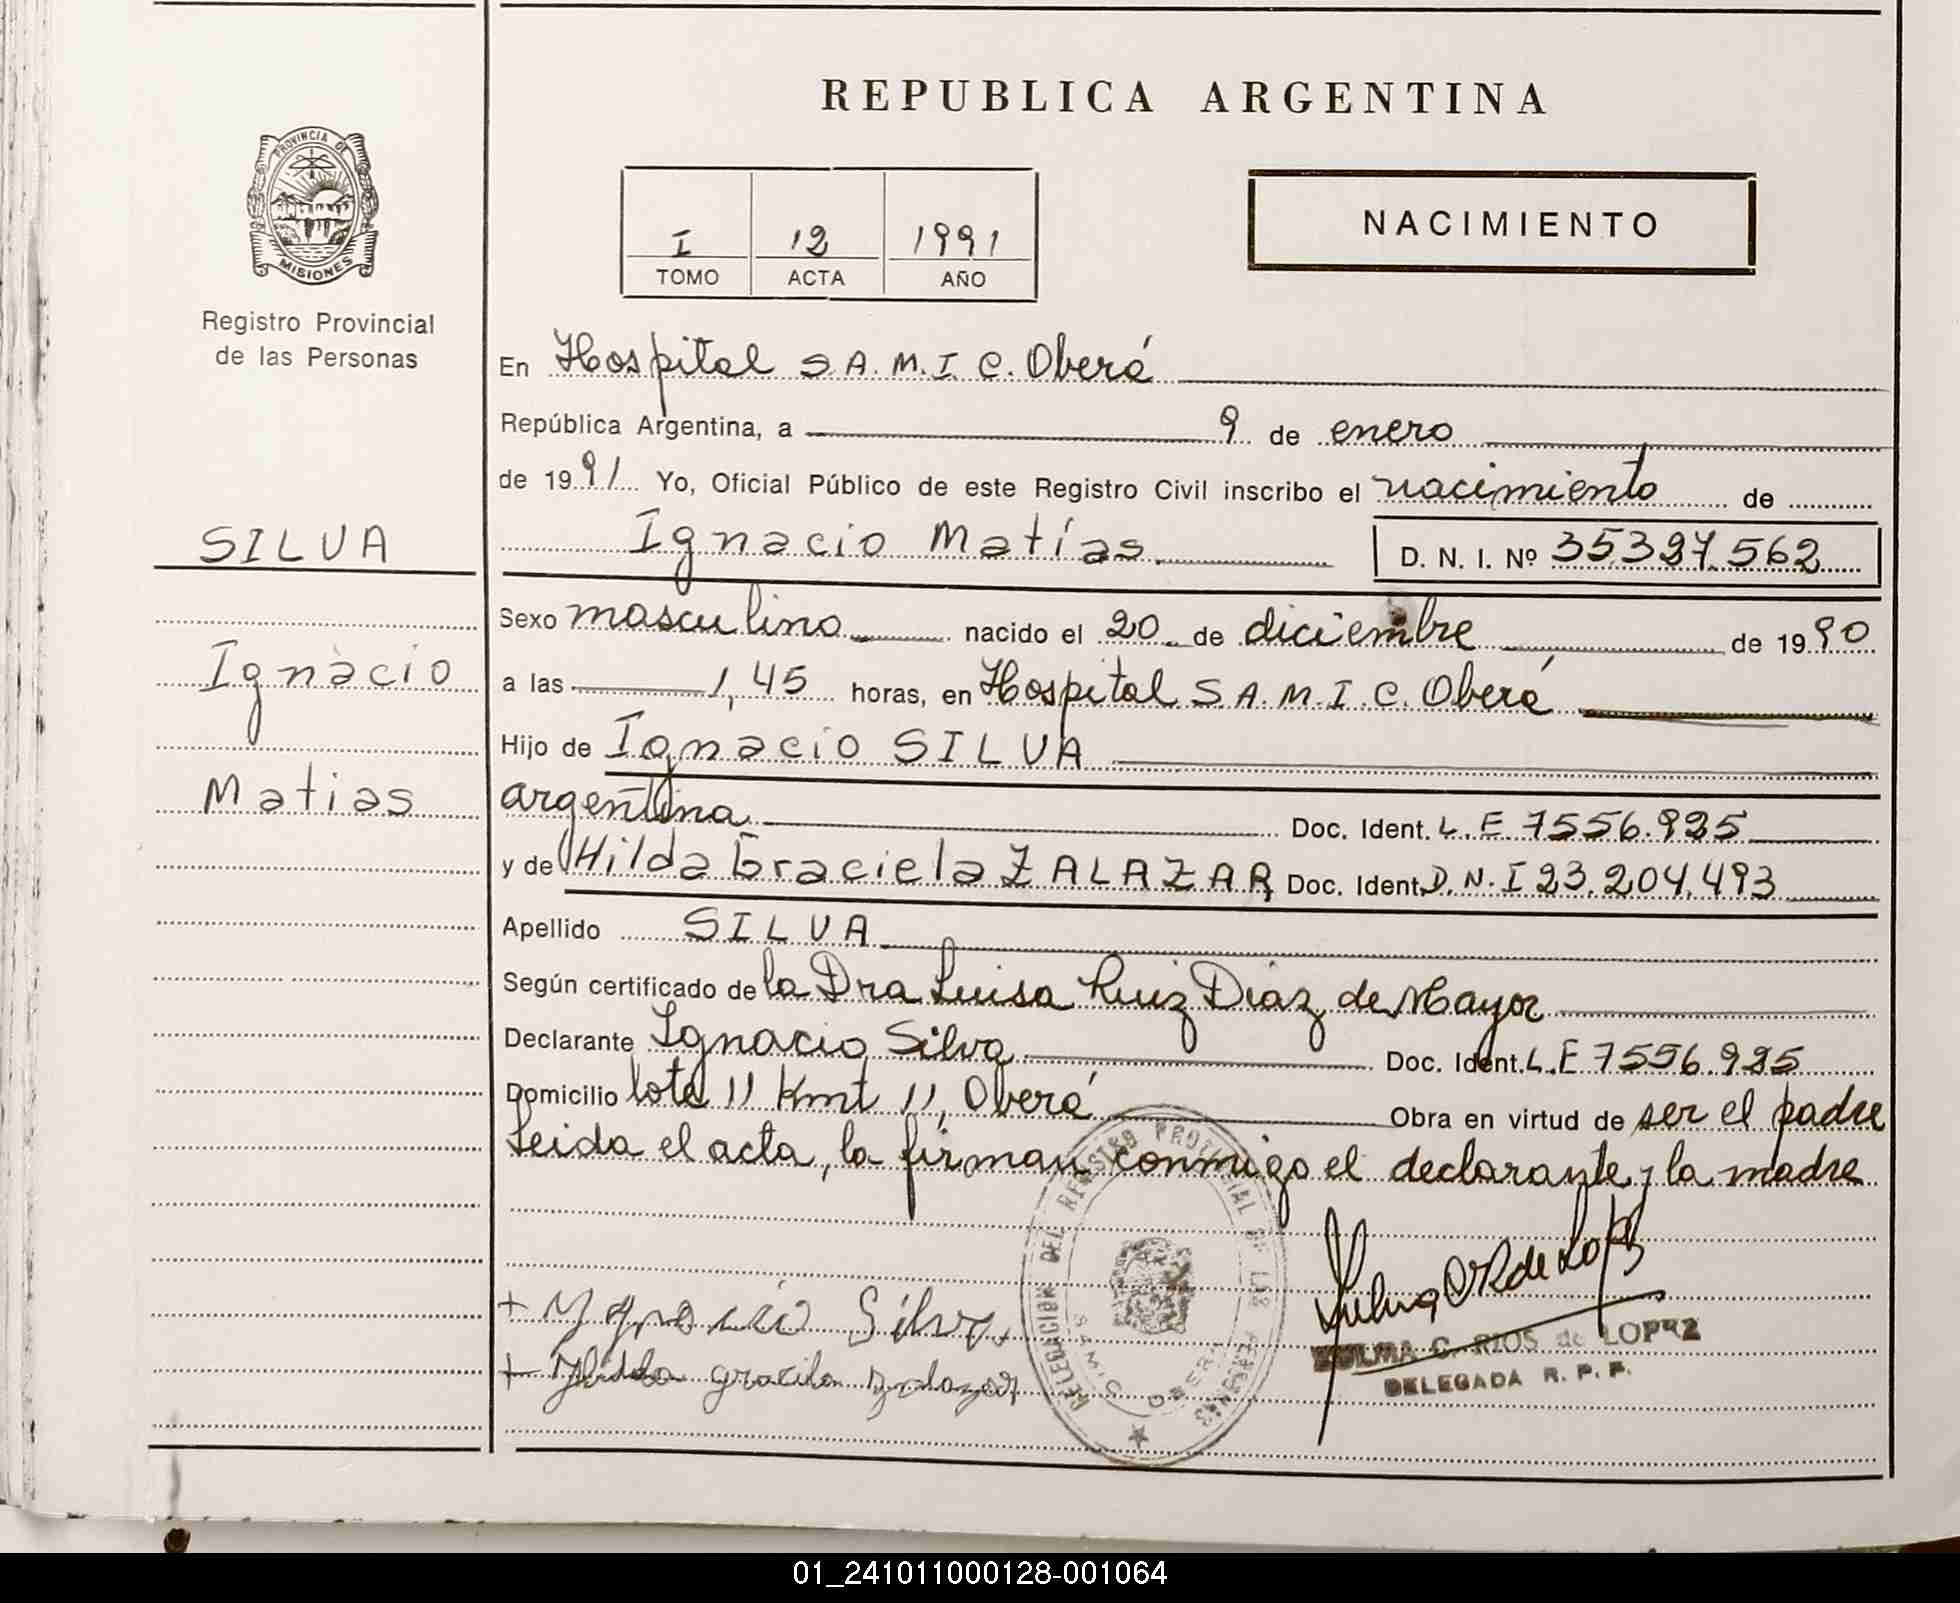 REPUBLICA ARGENTINA
PROVINCIA DE
MISIONES
Registro Provincial
de las Personas
I 12 1991
TOMO ACTA AÑO
NACIMIENTO
En Hospital S.A.M.I.C. Oberá
República Argentina, a 9 de enero
de 1991 Yo, Oficial Público de este Registro Civil inscribo el nacimiento de
SILVA
Ignacio Matías D. N. I. Nº 35.327.562
Sexo masculino nacido el 20 de diciembre de 1990
Ignacio
a las 1,45 horas, en Hospital S.A.M.I.C. Oberá
Hijo de Ignacio SILVA
Matias
argentina Doc. Ident. L.E 7556.925
y de Hilda Graciela ZALAZAR Doc. Ident. D.N.I 23.204.493
Apellido SILVA
Según certificado de la Dra Luisa Ruiz Diaz de Mayor
Declarante Ignacio Silva Doc. Ident. L.E 7556.925
Domicilio lote 11 Kmt 11, Oberá Obra en virtud de ser el padre
Leida el acta, la firman conmigo el declarante y la madre
DELEGACION DEL REGISTRO PROVINCIAL DE LAS PERSONAS
SAMIC OBERA
+ Ygnacio Silva
ZULMA C. RIOS de LOPEZ
+ Hilda gracila zalazar
DELEGADA R. P. P.
01_241011000128-001064